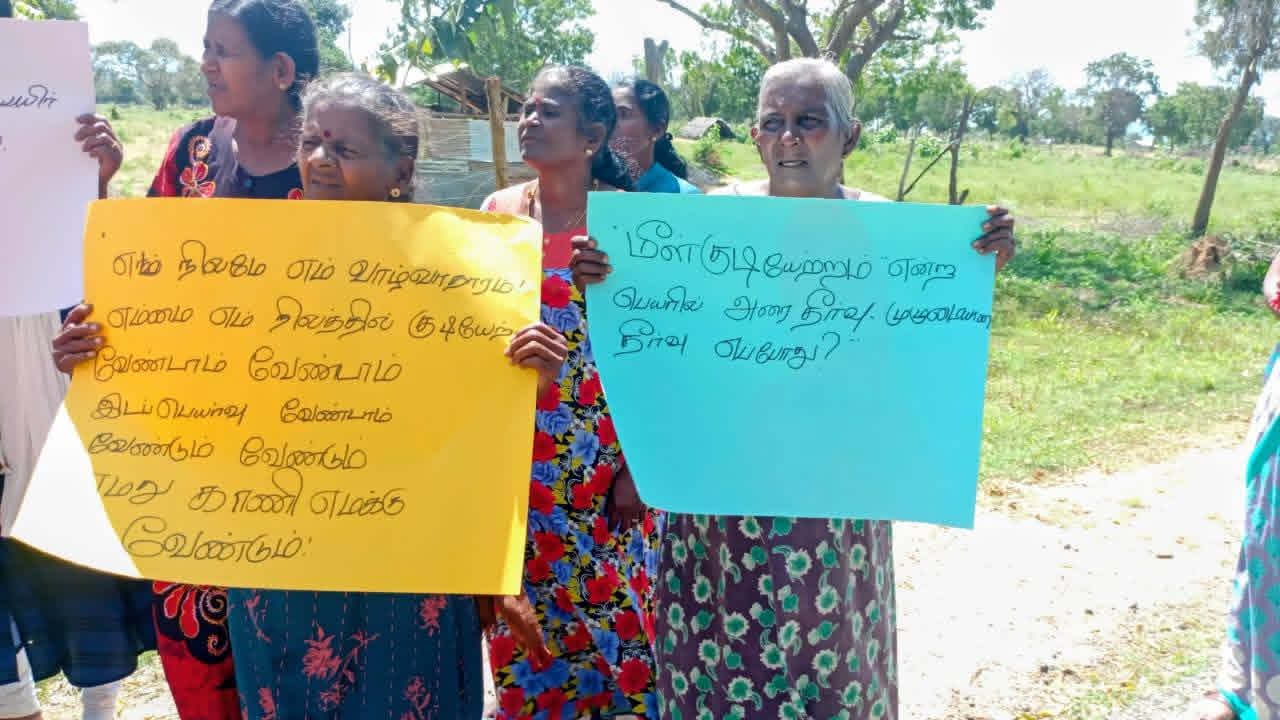 யைமீர்
"எம் நிலமே எம் வாழ்வாதாரம்!
எம்மை எம் நிலத்தில் குடியேற்று
வேண்டாம் வேண்டாம்
இடப்பெயர்வு வேண்டாம்
வேண்டும் வேண்டும்
எமது காணி எமக்கு
வேண்டும்!
"மீள்குடியேற்றம்" என்ற
பெயரில் அரை தீர்வு. முழுமையான
தீர்வு எப்போது?"